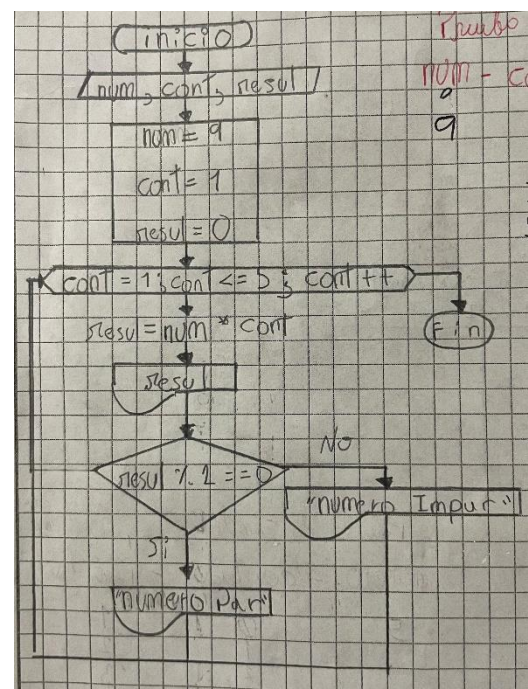 inicio
num, cont, resul
num = 9
cont = 1
resul = 0
cont = 1; cont <= 5; cont ++
resul = num * cont
Fin
resul
No
"numero Impar"
Si
"numero Par"
num -
0
9